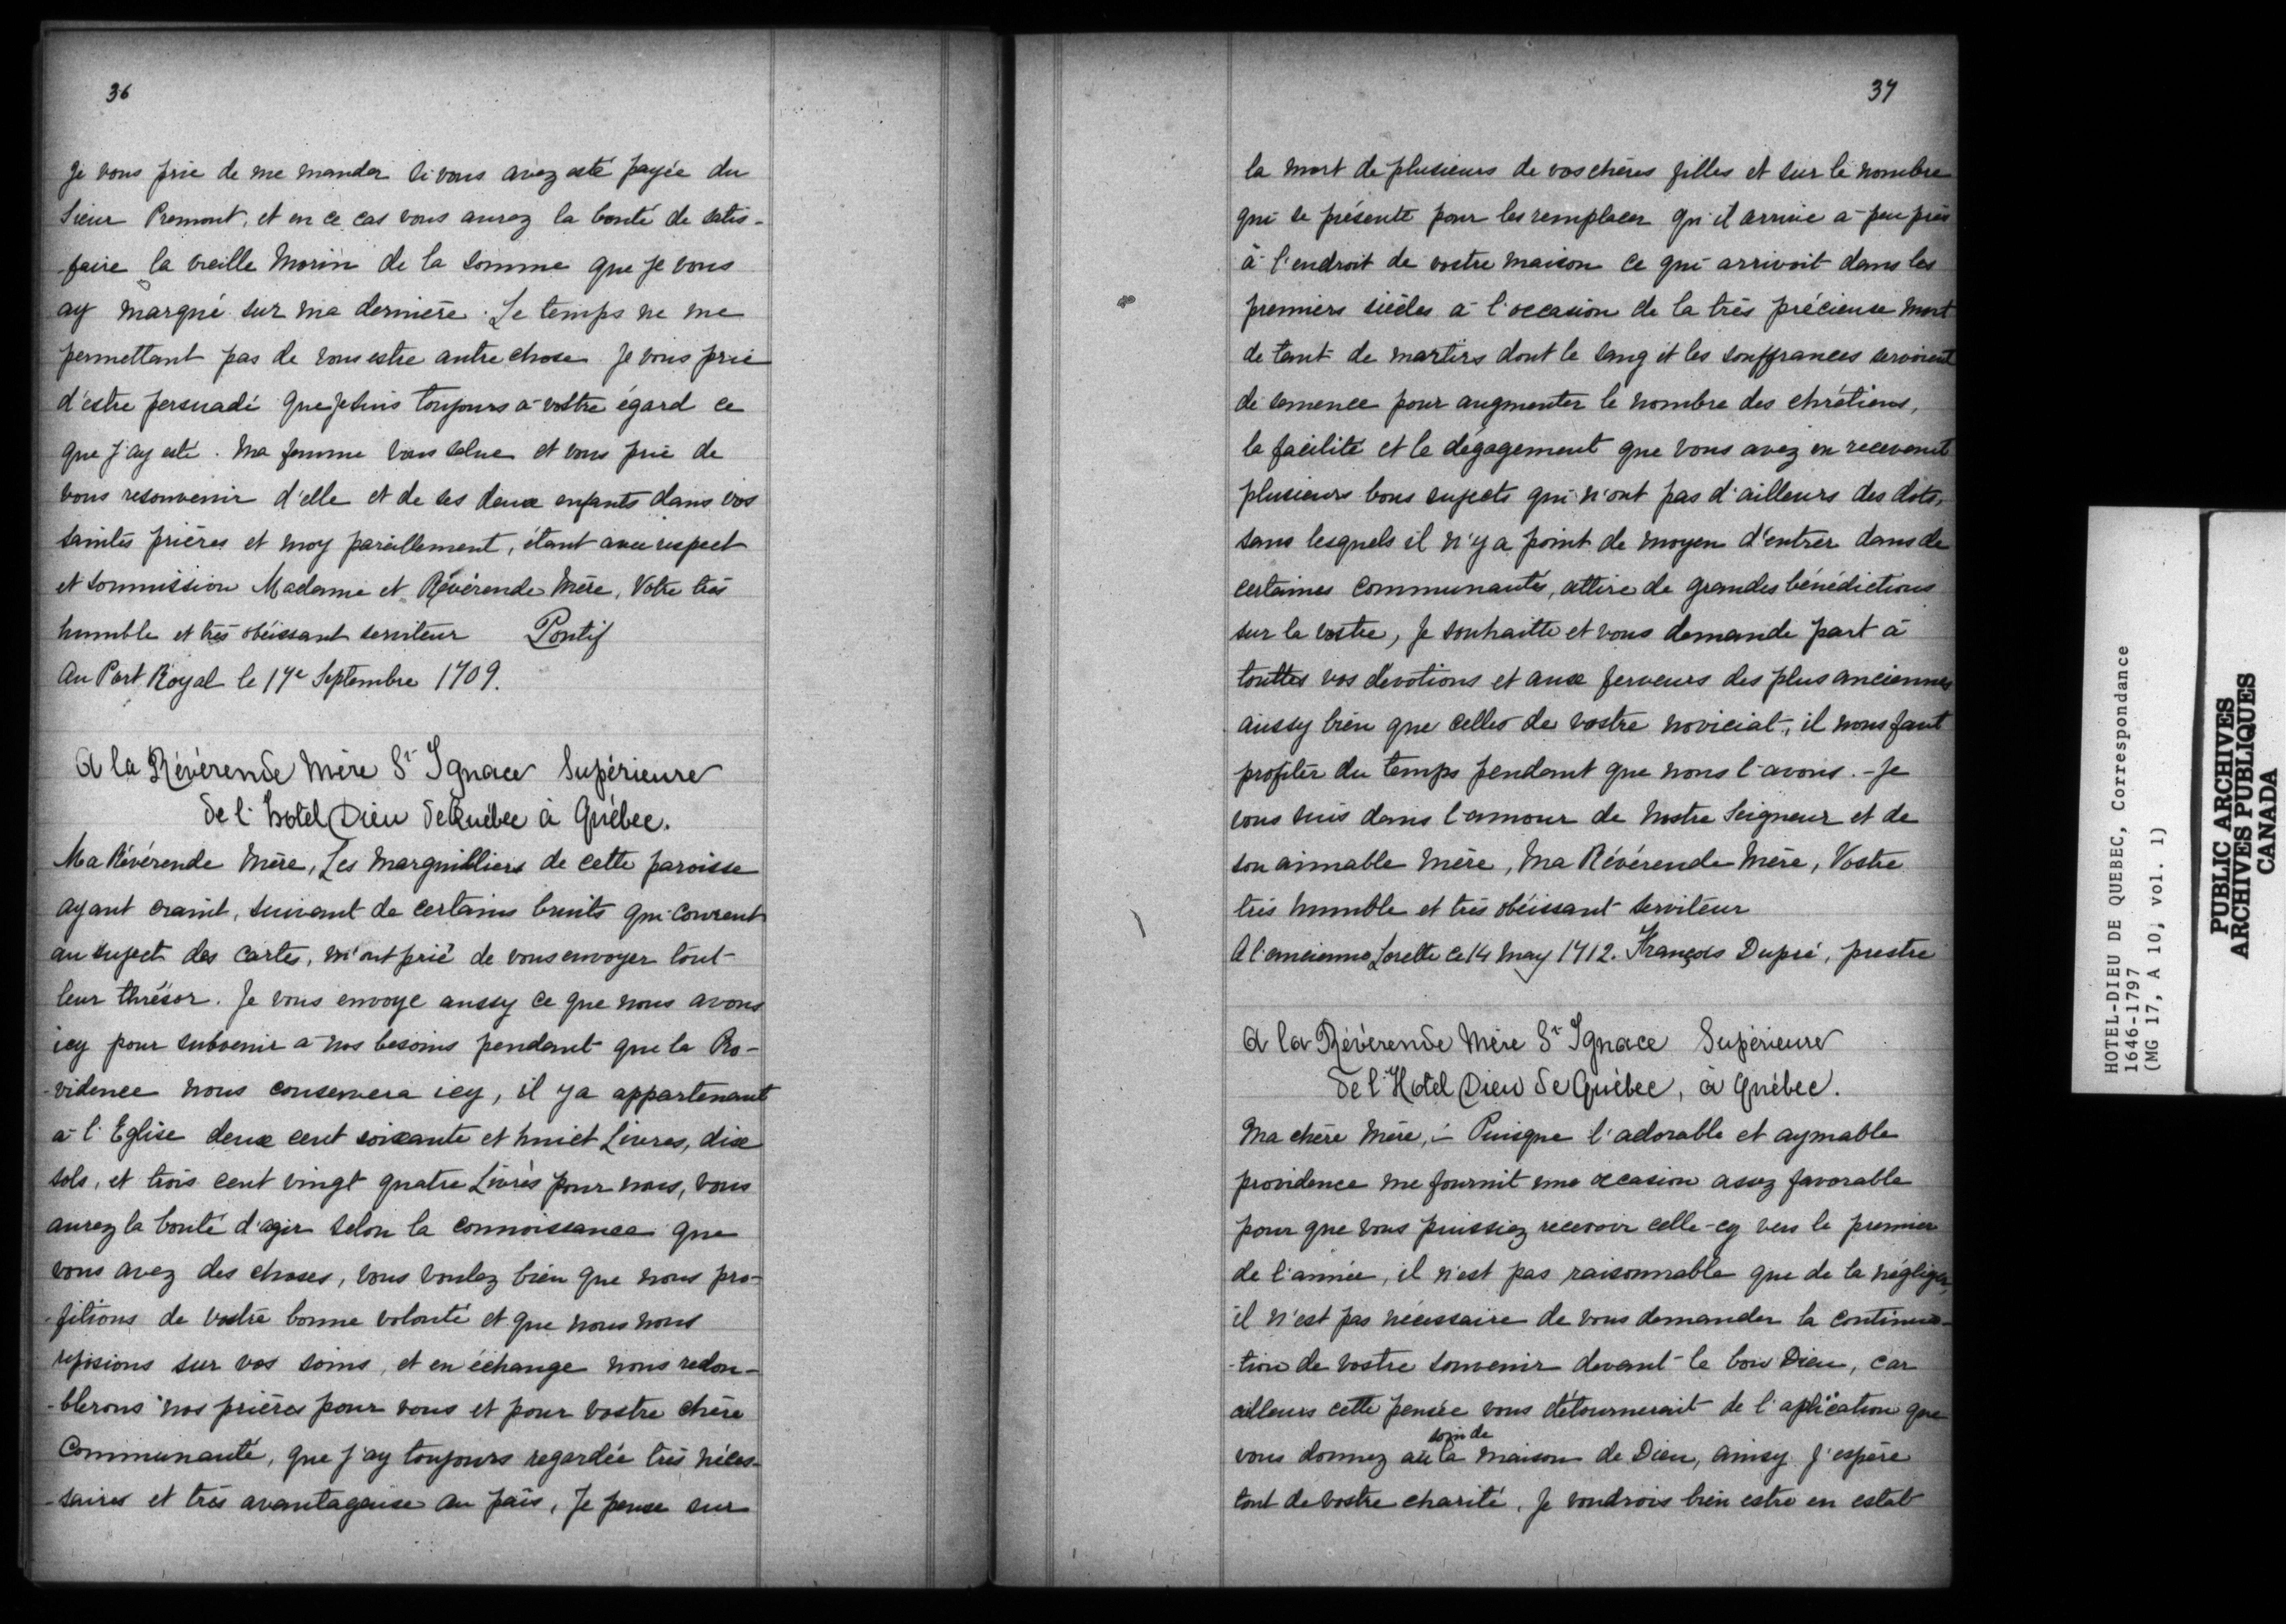 36
Je vous prie de me mander si vous avez esté payée du
Sieur Premont, et en ce cas vous aurez la bonté de satis-
-faire la vieille Morin de la somme que je vous
ay marqué sur ma dernière. Le temps ne me
permettant pas de vous estre autre chose je vous prie
d'estre persuadé que je suis toujours à vostre égard ce
que j'ay esté. Ma femme vous salue et vous prie de
vous resouvenir d'elle et de ses deux enfants dans vos
saintes prières et moy pareillement, étant avec respect
et soumission Madame et Révérende Mère, Votre très
humble et très obéissant serviteur Pontif
Au Port Royal le 17e Septembre 1709.
A la Révérende Mère St Ignace Supérieure
de l'hotel Dieu de Québec à Québec.
Ma Révérende Mère, Les Marguilliers de cette paroisse
ayant craint, suivant de certains bruits qui courent
au suject des cartes, m'ont prié de vous envoyer tout
leur thrésor. Je vous envoye aussy ce que nous avons
icy pour subvenir à nos besoins pendant que la Pro-
-vidence nous conservera icy, il y a appartenant
à l'Eglise deux cent soixante et huict Livres, dix
sols, et trois cent vingt quatre Livres pour nous, vous
aurez la bonté d'agir selon la connoissance que
vous avez des choses, vous voulez bien que nous pro-
-fitions de vostre bonne volonté et que nous nous
reposions sur vos soins, et en échange nous redou-
-blerons nos prières pour vous et pour vostre chère
Communauté, que j'ay toujours regardée très néces-
-saires et très avantageuse au païs, Je pense sur
37
la mort de plusieurs de vos chères filles et sur le nombre
qui se présente pour les remplacer qu'il arrive à peu près
à l'endroit de vostre maison ce qui arrivoit dans les
premiers siècles à l'occasion de la très précieuse mort
de tant de martirs dont le sang et les souffrances servoient
de semence pour augmenter le nombre des chrétiens,
la facilité et le dégagement que vous avez en recevant
plusieurs bons sujects qui n'ont pas d'ailleurs des dots,
sans lesquels il n'y a point de moyen d'entrer dans de
certaines communautés, attire de grandes bénédictions
sur la vostre, Je souhaitte et vous demande part à
touttes vos dévotions et aux ferveurs des plus anciennes
aussy bien que celles de vostre noviciat, il nous faut
profiter du temps pendant que nous l'avons. - Je
vous suis dans l'amour de Nostre Seigneur et de
son aimable mère, Ma Révérende Mère, Vostre
très humble et très obéissant serviteur
A l'ancienne Lorette ce 14 May 1712. François Dupré, prestre
A la Révérende Mère St Ignace Supérieure
de l'Hotel Dieu de Québec, à Québec.
Ma chère Mère, - Puisque l'adorable et aymable
providence me fournit une occasion assez favorable
pour que vous puissiez recevoir celle-cy vers le premier
de l'année, il n'est pas raisonnable que de la négliger,
il n'est pas nécessaire de vous demander la continua-
-tion de vostre souvenir devant le bon Dieu, car
ailleurs cette pensée vous détournerait de l'aplication que
soin de
vous donnez au la maison de Dieu, ainsy j'espère
tout de vostre charité, Je voudrois bien estre en estat
HOTEL-DIEU DE QUEBEC, Correspondance
1646-1797
(MG 17, A 10, vol. 1)
PUBLIC ARCHIVES
ARCHIVES PUBLIQUES
CANADA